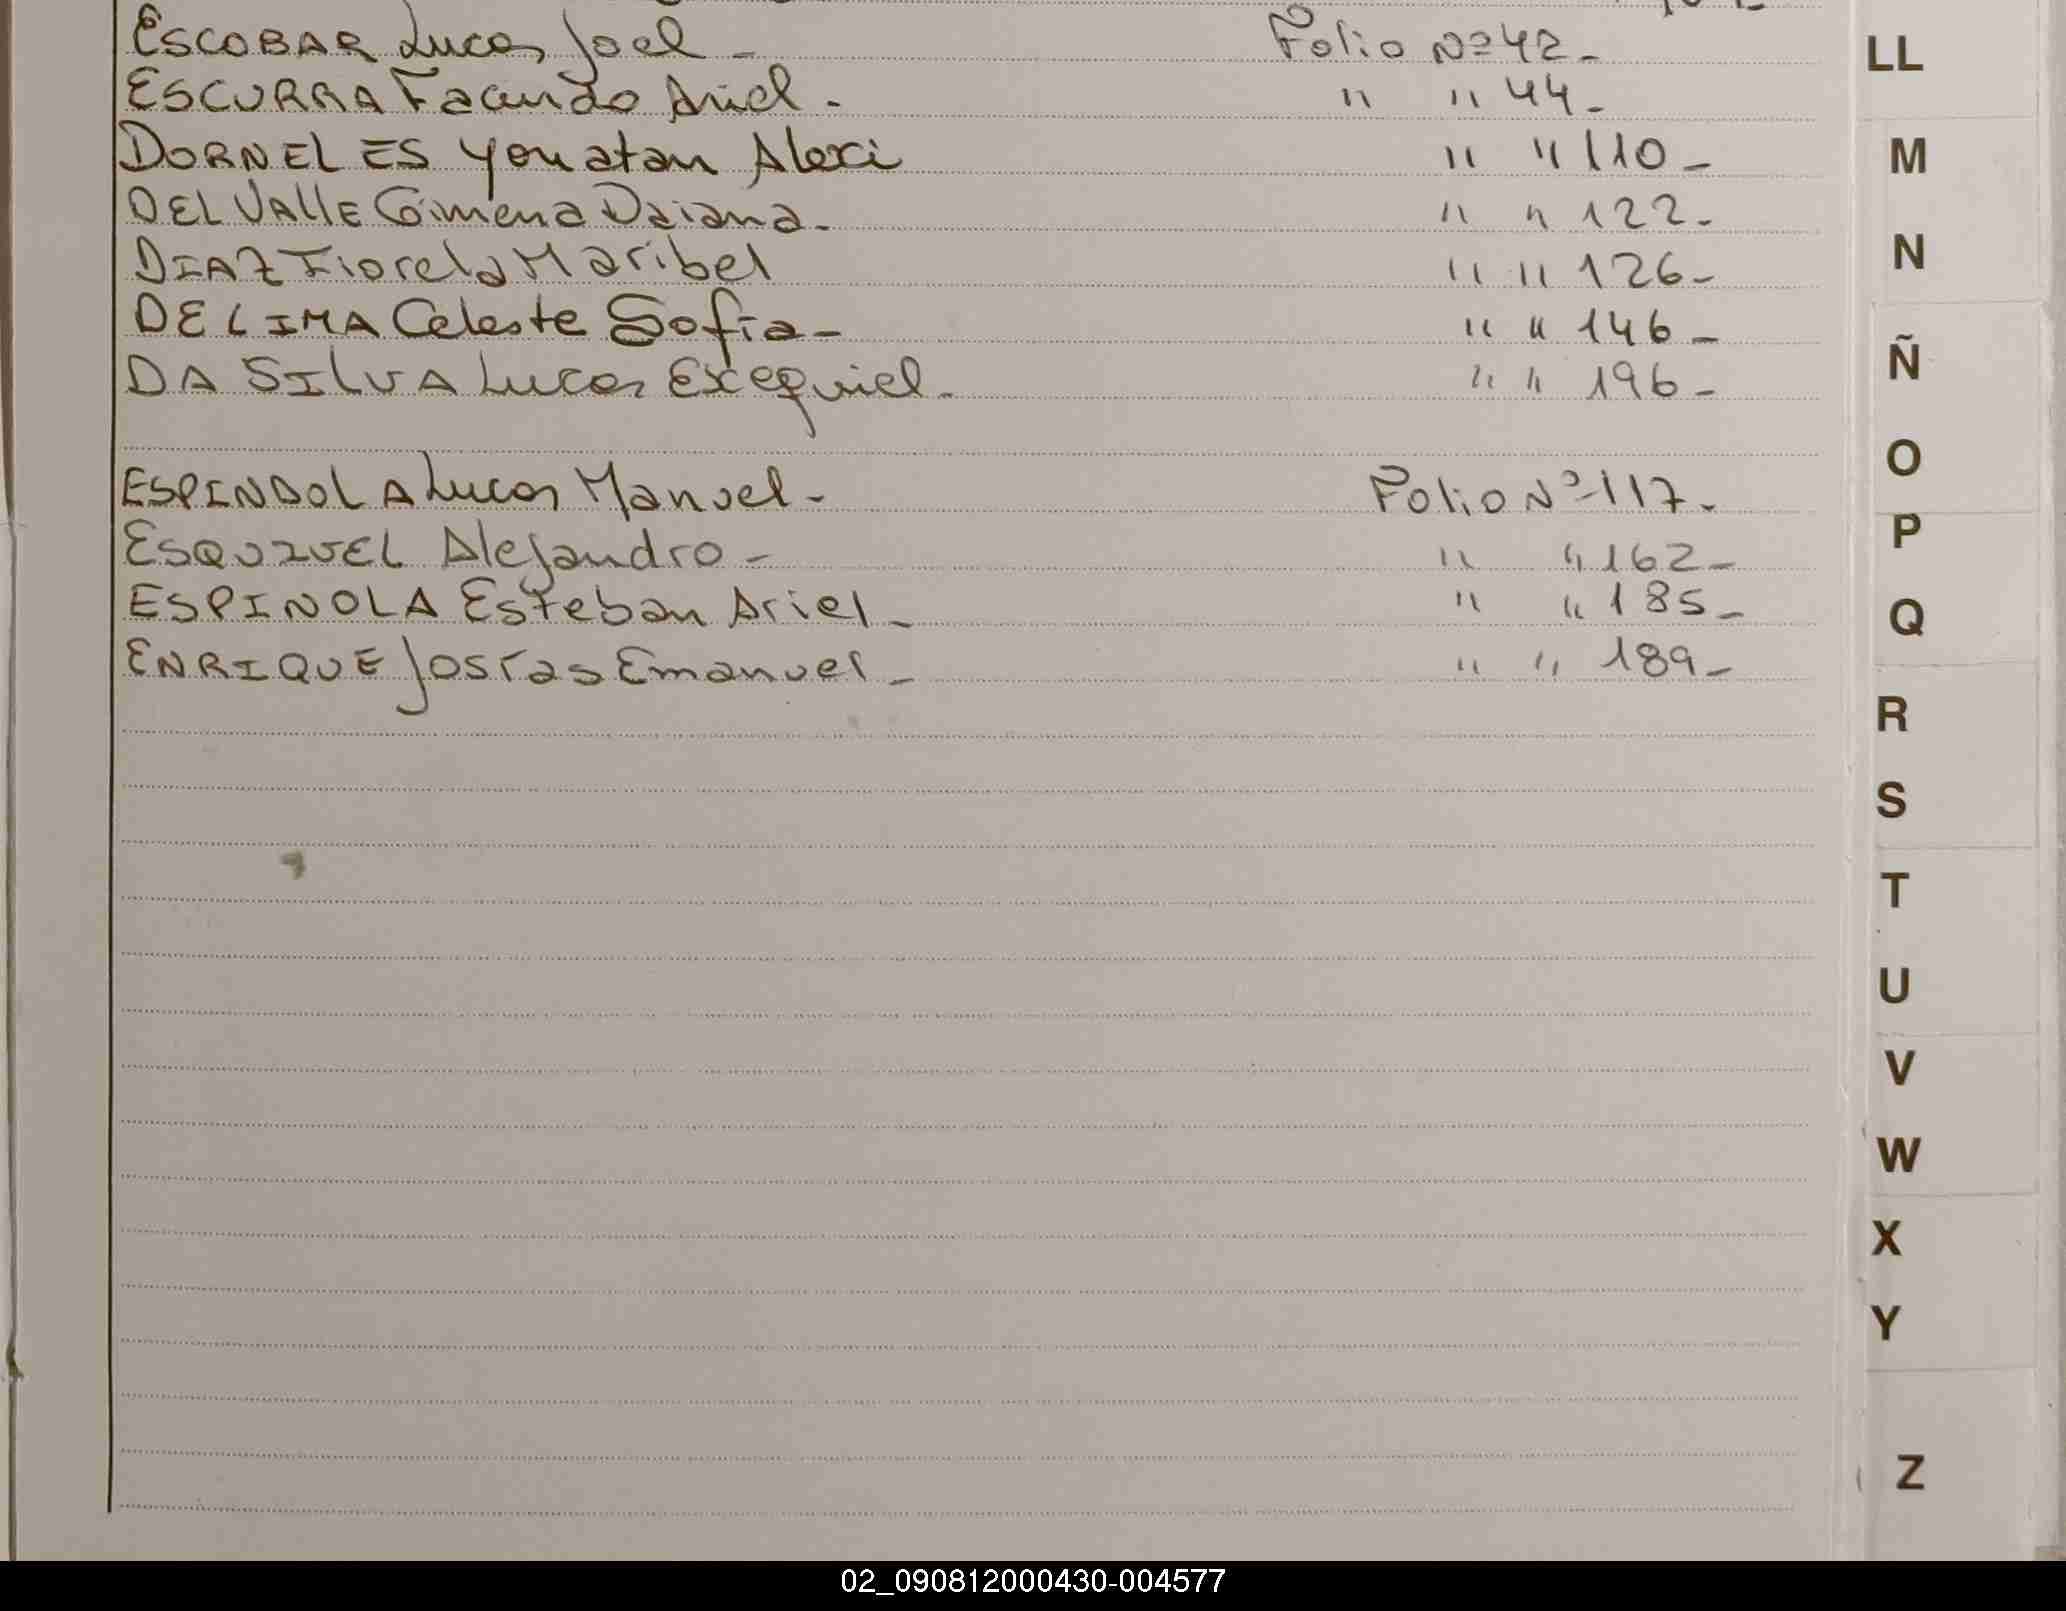 ESCOBAR Lucas Joel - Folio Nº 42-
ESCURRA Facundo Ariel - " " 44-
DORNELES Yonatan Alexi " " 110-
DEL VAllE Gimena Daiana- " " 122-
DIAZ Fiorela Maribel " " 126-
DE LIMA Celeste Sofía- " " 146-
DA SILVA Lucas Exequiel- " " 196-
ESPINDOLA Lucas Manuel- Folio Nº 117-
ESQUIVEL Alejandro- " " 162-
ESPINOLA Esteban Ariel- " " 185-
ENRIQUE Josías Emanuel- " " 189-
LL
M
N
Ñ
O
P
Q
R
S
T
U
V
W
X
Y
Z
02_090812000430-004577